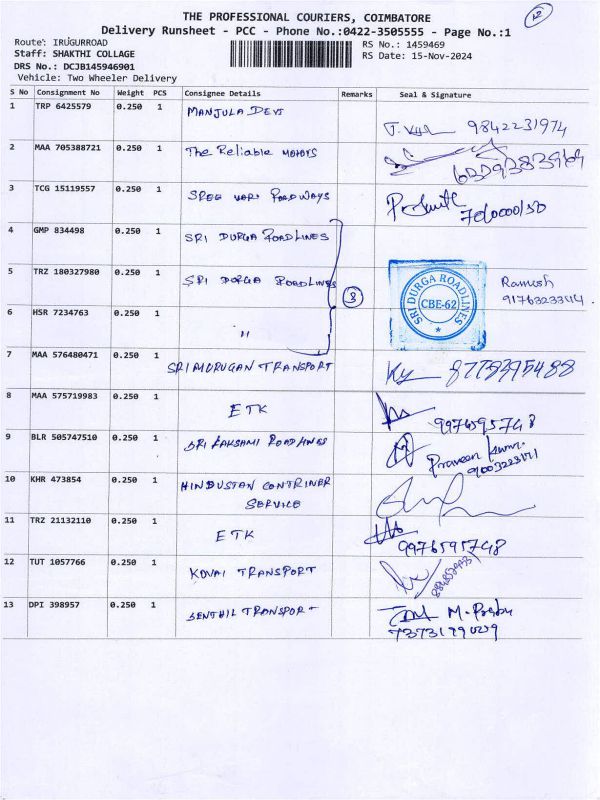 12
THE PROFESSIONAL COURIERS, COIMBATORE
Delivery Runsheet - PCC - Phone No.:0422-3505555 - Page No.:1
Route: IRUGURROAD
RS No.: 1459469
Staff: SHAKTHI COLLAGE
RS Date: 15-Nov-2024
DRS No.: DCJB145946901
Vehicle: Two Wheeler Delivery
S No Consignment No Weight PCS Consignee Details Remarks Seal & Signature
1 TRP 6425579 0.250 1 MANJULA DEVI 9842231974
2 MAA 705388721 0.250 1 The Reliable MOTORS
3 TCG 15119557 0.250 1 SREE HARI ROADWAYS
4 GMP 834498 0.250 1 SRI DURGA ROADLINES
5 TRZ 180327980 0.250 1 SRI DORGA ROADLINES 3 SRI DURGA ROADLINES CBE-62 Ramesh
6 HSR 7234763 0.250 1 "
7 MAA 576480471 0.250 1 SRI MURUGAN TRANSPORT 8778395488
8 MAA 575719983 0.250 1 ETK 9976595748
9 BLR 505747510 0.250 1 SRI LAKSHMI ROADLINES Praveen Kumar
10 KHR 473854 0.250 1 HINDUSTAN CONTRINER
SERVICE
11 TRZ 21132110 0.250 1 ETK 9976595748
12 TUT 1057766 0.250 1 KOVAI TRANSPORT
13 DPI 398957 0.250 1 SENTHIL TRANSPORT M. Prabu